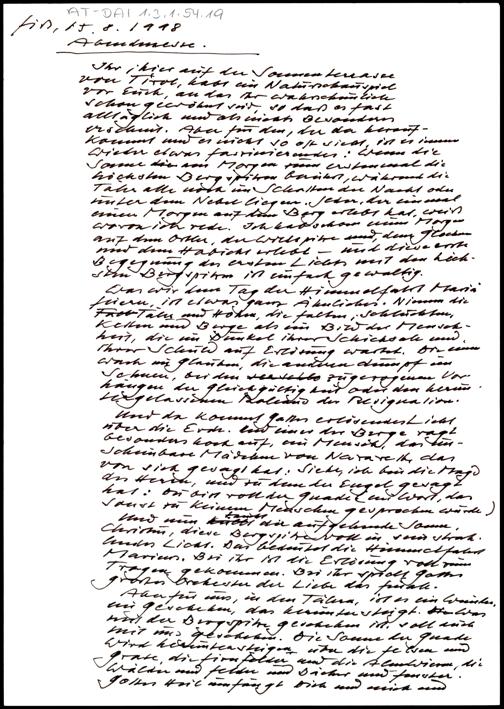 AT-DAI 1.3.1.54.19
Fiß, 15.8.1998
Abendmesse.
Ihr, hier auf der Sonnenterrasse
von Tirol, habt ein Naturschauspiel
vor Euch, an das Ihr wahrscheinlich
schon gewöhnt seit, so daß es fast
alltäglich und als nichts Besonderes
erscheint. Aber für den, der da herauf-
kommt und es nicht so oft sieht, ist es immer
wieder etwas faszinierendes: Wenn die
Sonne am Morgen zum erstenmal die
höchsten Bergspitzen berührt, während die
Täler alle noch im Schatten der Nacht oder
unter dem Nebel liegen. Jeder, der einmal
einen Morgen auf dem Berg erlebt hat, weiß
wovon ich rede. Ich hab schon einen Morgen
auf dem Ortler, der Wildspitze und dem Glockner
und dem Habicht erlebt – und diese erste
Begegnung des ersten Lichts mit den höch-
sten Bergspitzen ist einfach gewaltig.
Was wir den Tag der Himmelfahrt Mariä
feiern, ist etwas ganz Ähnliches. Nimm die
Täler und Höhen, die falten, Schluchten,
Ketten und Berge als ein Bild der Mensch-
heit, die im Dunkel ihrer Schicksale und
ihrer Schuld auf Erlösung wartet. Die einen
wach im glauben, die anderen dumpf im
Schlaf, bei den zugezogenen Vor-
hängen der gleichgültigkeit oder den herun-
tergelassenen der Resignation.
Und da kommt gottes erlösendes Licht
über die Erde. Und einer der Berge ragt
besonders hoch auf, ein Mensch, das un-
scheinbare Mädchen von Nazareth, das
von sich gesagt hat: Siehe, ich bin die Magd
des Herrn, und zu dem der Engel gesagt
hat: Du bist voll der gnade (ein Wort, das
sonst zu keinem Menschen gesprochen wurde)
Und nun die aufgehende Sonne,
Christus, diese Bergspitze voll in sein strah-
lendes Licht. Das bedeutet die Himmelfahrt
Mariens. Bei ihr ist die Erlösung voll zum
Tragen gekommen. Bei ihr spielt gottes
großes Orchester der Liebe das finale.
Aber für uns, in den Tälern, ist es ein Wunder,
ein geschehen, das heruntersteigt. Was
mit der Bergspitze geschehen ist, soll auch
mit uns geschehen. Die Sonne der gnade
wird heruntersteigen über die felsen und
grate, die firnfelder und die Almwiesen, die
Wälder und felder und Dächer und fenster.
gottes Heil umfängt Dich und mich und